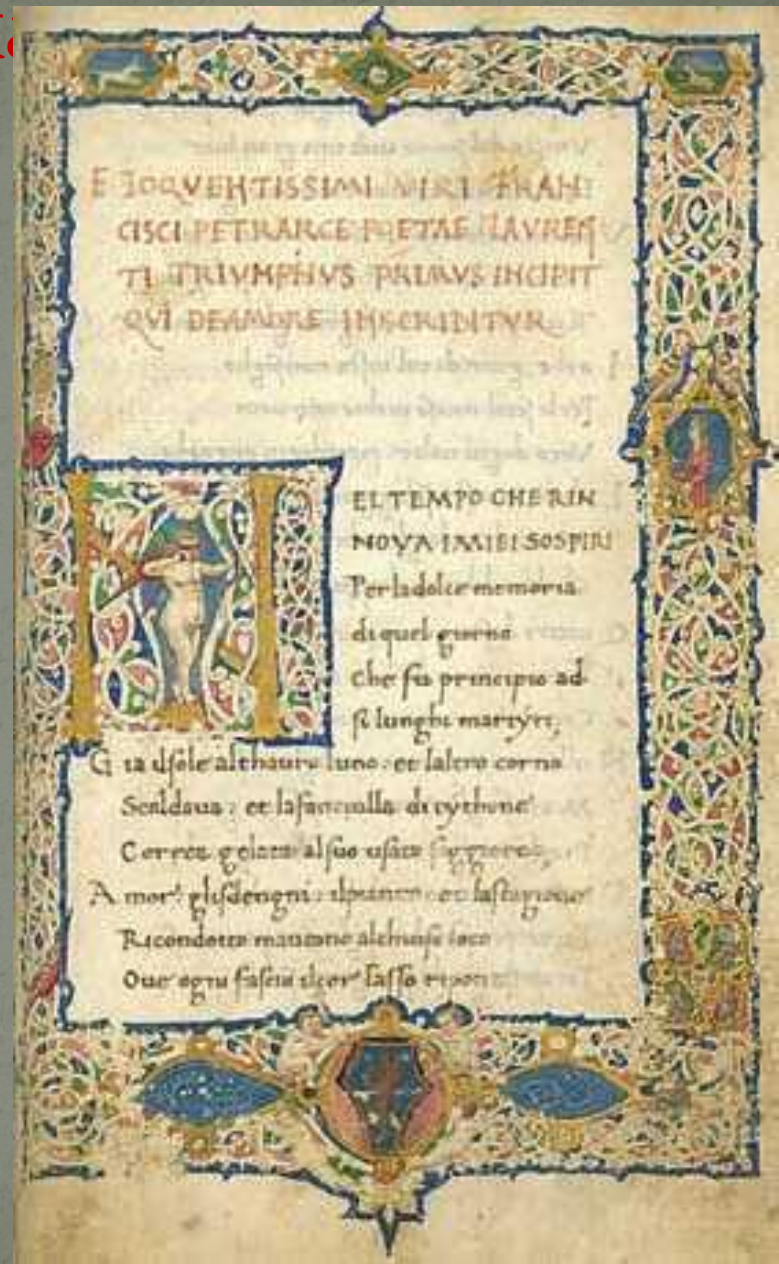 ELOQVENTISSIMI VIRI FRAN
CISCI PETRARCE POETAE LAVREN
TI TRIVMPHVS PRIMVS INCIPIT
QVI DEAMORE INSCRIBITVR
NEL TEMPO CHE RIN
NOVA IMIEI SOSPIRI
Per la dolce memoria
di quel giorno
Che fu principio ad
si lunghi martyri,
Gia ilsole althauro luno. et laltro corno
Scaldaua: et lafanciulla di tythone
Correa gelata alsuo usato soggiorno,
Amor. glisdengni: ilpianto et lastagione
Ricondotto maueano alchiuso loco
Oue ogni fascio ilcor lasso ripone